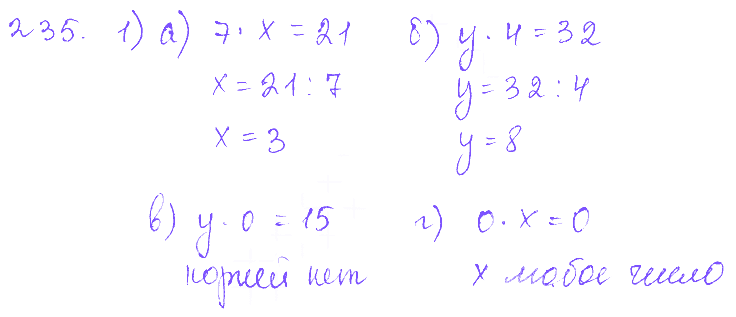 235. 1) а) 7 · x = 21 б) y · 4 = 32
x = 21 : 7 y = 32 : 4
x = 3 y = 8
в) y · 0 = 15 г) 0 · x = 0
корней нет x любое число